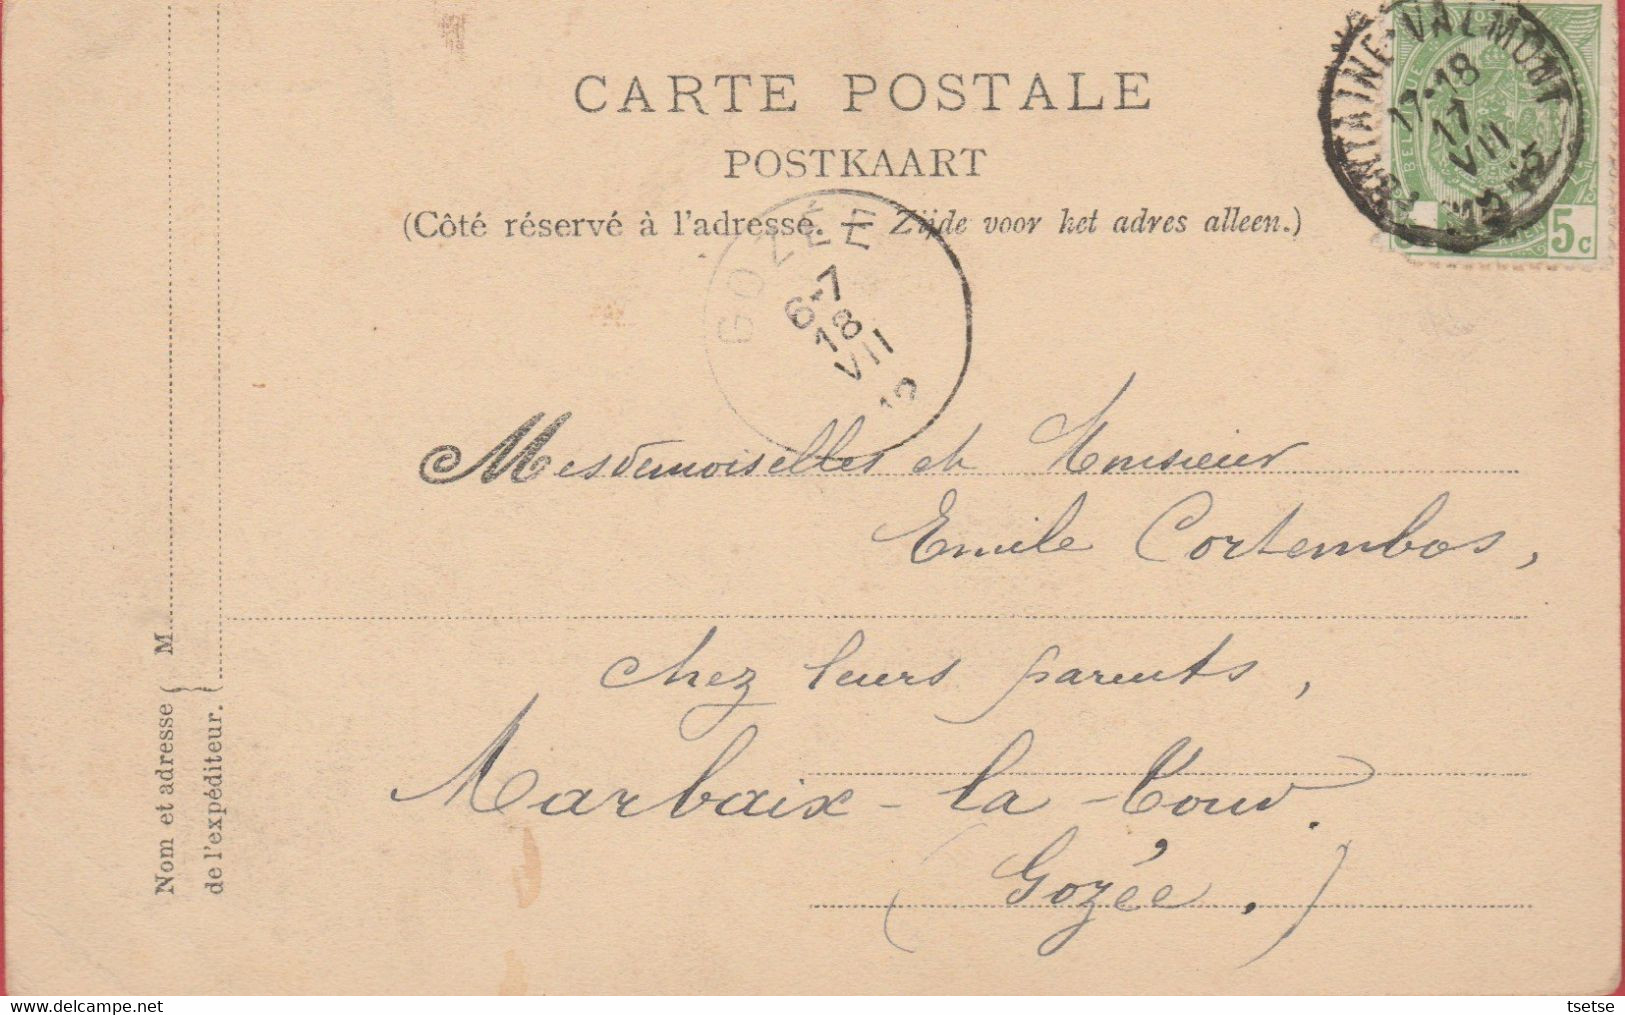 CARTE POSTALE
POSTKAART
(Côté réservé à l'adresse. — Zijde voor het adres alleen.)
FONTAINE-VALMONT
17-18
17
VII
BELGIQUE
5c
GOZÉE
6-7
18
VII
Mesdemoiselles et Monsieur
Emile Cortembos,
chez leurs parents,
Marbaix-la-Tour.
(Gozée.)
Nom et adresse M
de l'expéditeur.
www.delcampe.net
tsetse